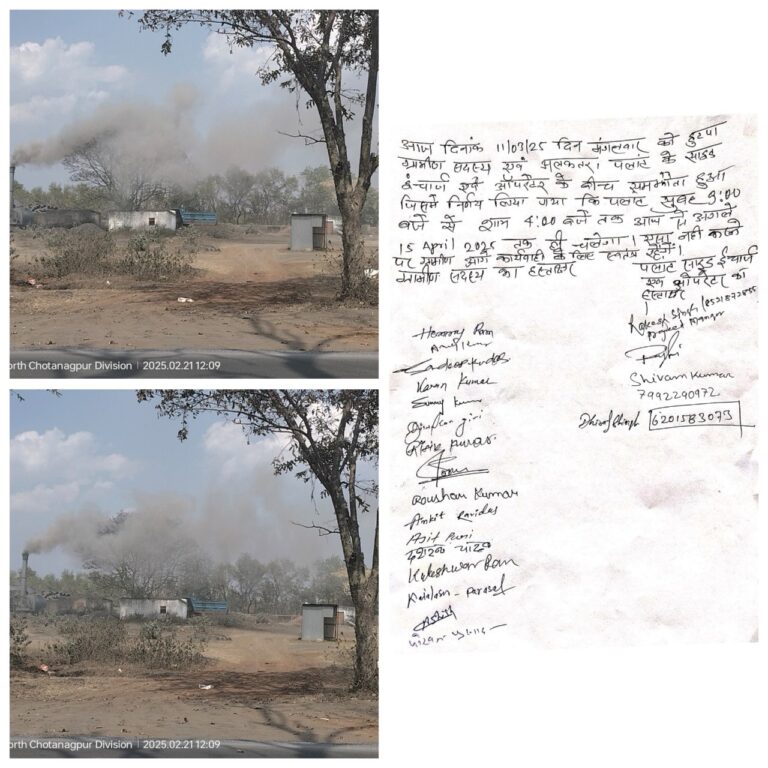 orth Chotanagpur Division | 2025.02.21 12:09
orth Chotanagpur Division | 2025.02.21 12:09
आज दिनांक 11/03/25 दिन मंगलवार को हुरपा
ग्रामीण सदस्य एवं अलकतरा प्लांट के साइड
इंचार्ज एवं ऑपरेटर के बीच समझौता हुआ
जिसमें निर्णय लिया गया कि प्लांट सुबह 9:00
बजे से शाम 4:00 बजे तक आज से अगले
15 April 2025 तक ही चलेगा। ऐसा नहीं करने
पर ग्रामीण आगे कार्यवाही के लिए स्वतंत्र रहेंगे।
ग्रामीण सदस्य का हस्ताक्षर
प्लांट साइड इंचार्ज
एवं ऑपरेटर का
हस्ताक्षर
Rakesh Singh
Project Manager
Shivam Kumar
7992290972
Dhiraj Singh 6201583073
Hemraj Ram
Sandeep
Karan Kumar
Sunny Kumar
giri
Kumar
Roushan Kumar
Ankit Ravidas
Ajit
यादव
Kuleshwar Ram
Kailash Parasad
Ashish